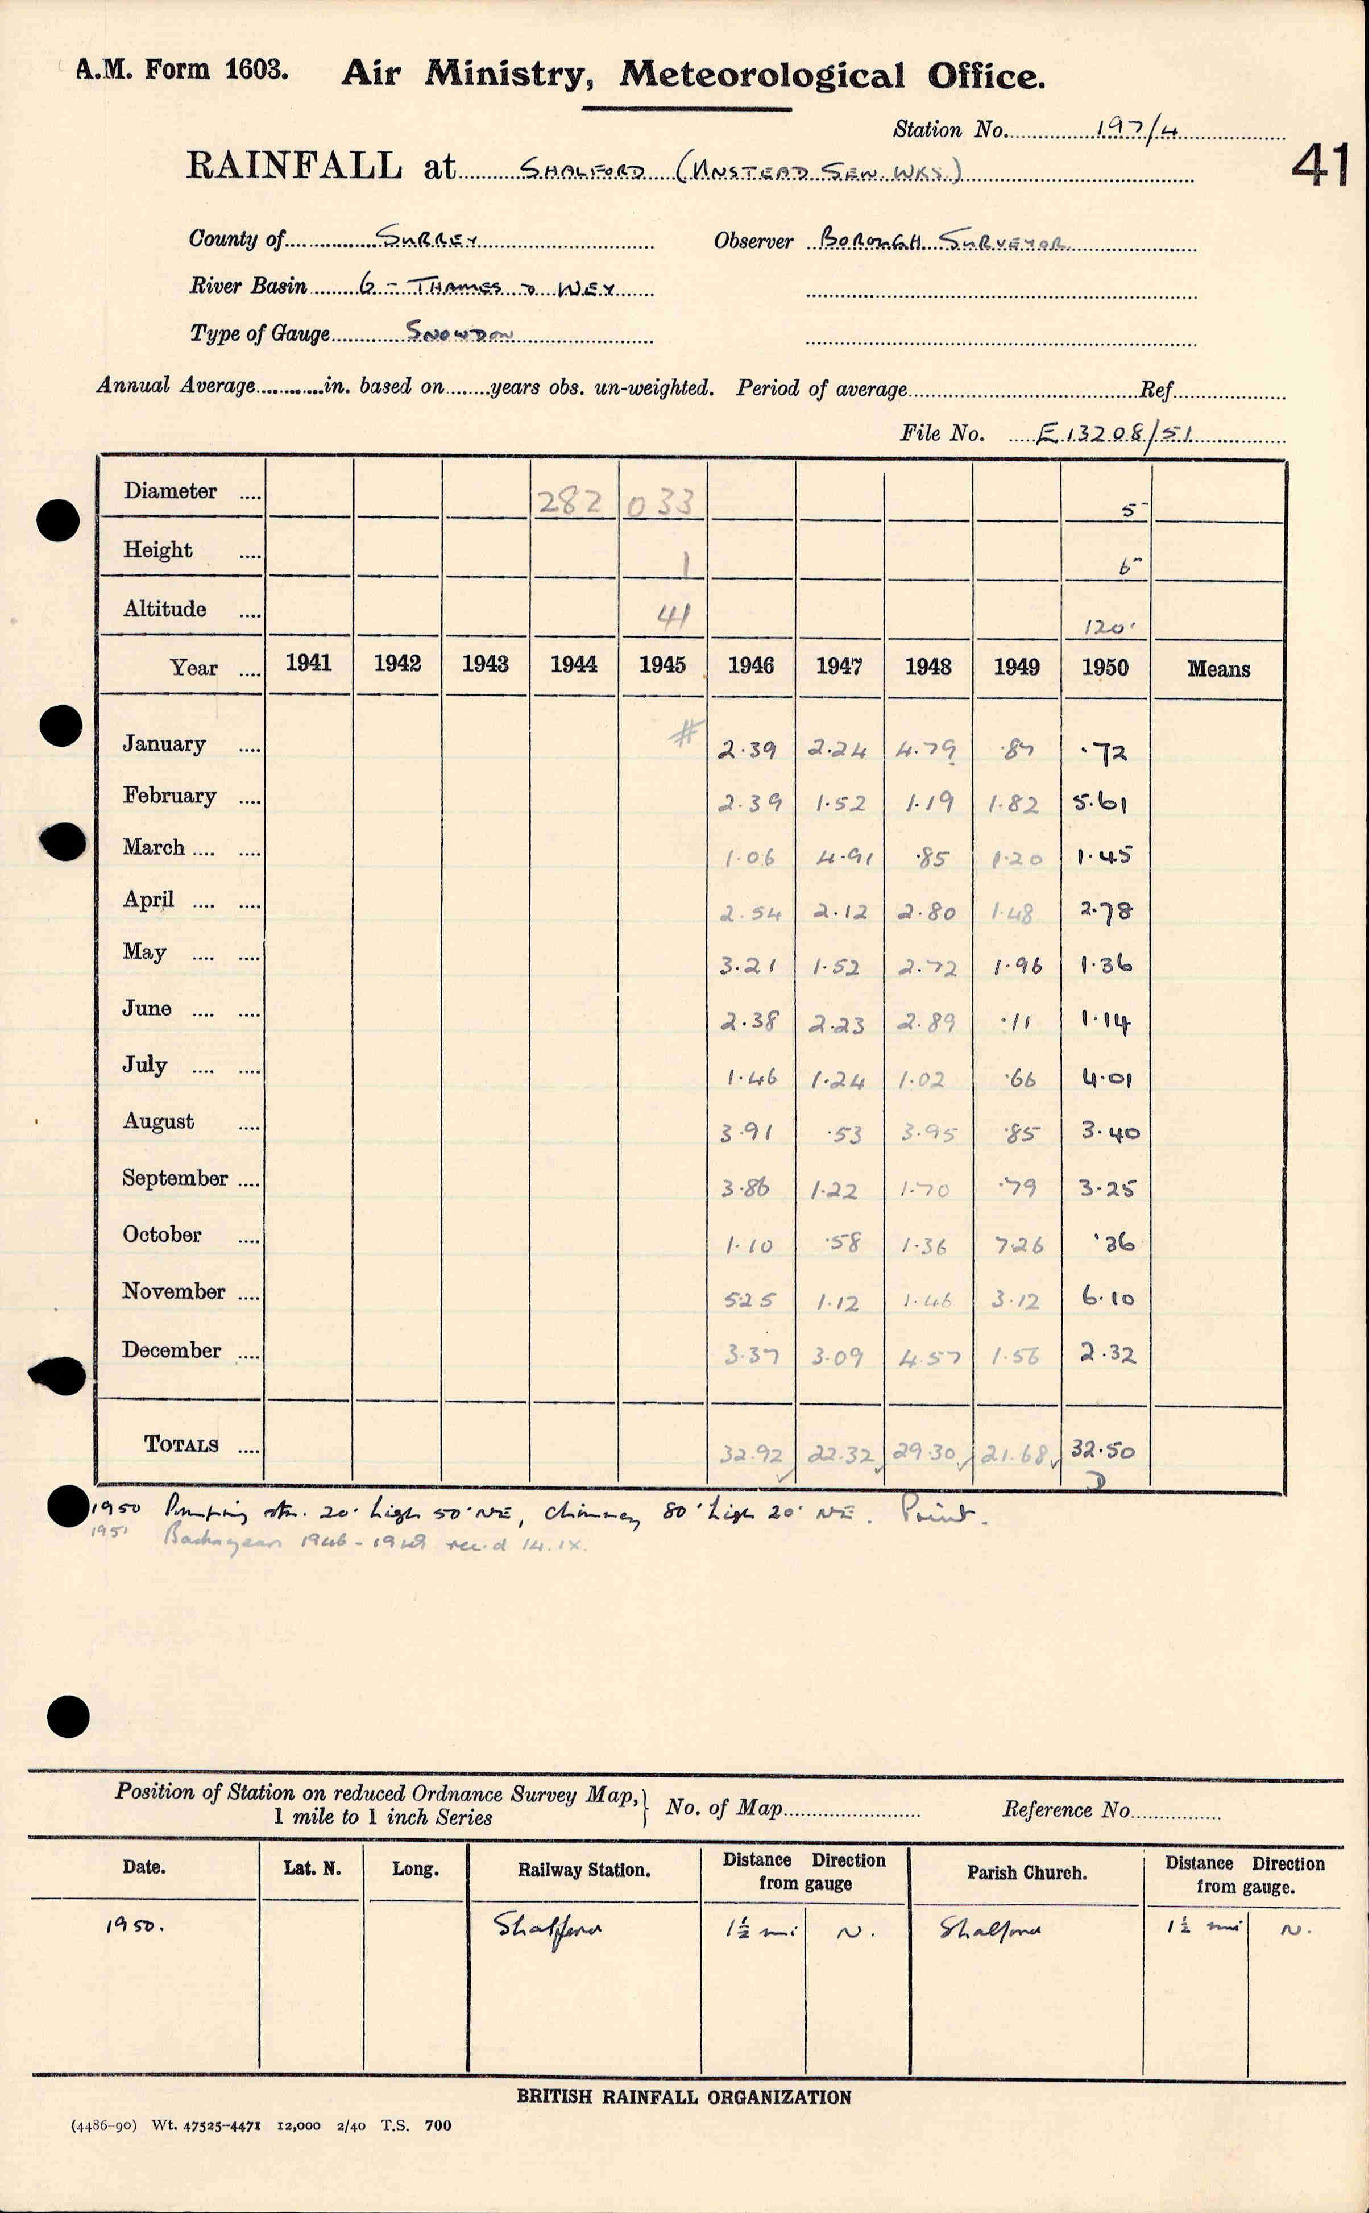 A.M. Form 1603. Air Ministry, Meteorological Office.
Station No. 197/4
41
RAINFALL at SHALFORD (UNSTEAD SEW. WKS)
County of SURREY Observer BOROUGH SURVEYOR
River Basin 6 - THAMES & WEY
Type of Gauge SNOWDON
Annual Average in. based on years obs. un-weighted. Period of average Ref
File No. E13208/51
Diameter 282 033 5
Height 1 6"
Altitude 41 120'
Year 1941 1942 1943 1944 1945 1946 1947 1948 1949 1950 Means
January # 2.39 2.24 4.79 .87 .72
February 2.39 1.52 1.19 1.82 5.61
March 1.06 4.91 .85 1.20 1.45
April 2.54 2.12 2.80 1.48 2.78
May 3.21 1.52 2.72 1.96 1.36
June 2.38 2.23 2.89 .11 1.14
July 1.46 1.24 1.02 .66 4.01
August 3.91 .53 3.95 .85 3.40
September 3.86 1.22 1.70 .79 3.25
October 1.10 .58 1.36 7.26 .36
November 5.25 1.12 1.46 3.12 6.10
December 3.37 3.09 4.57 1.56 2.32
TOTALS 32.92 22.32 29.30 21.68 32.50
D
1950 Pumping stn. 20' high 50' NE, chimney 80' high 20' NE. Print.
1951 Back years 1946-1949 rec'd 14.IX.
Position of Station on reduced Ordnance Survey Map,
1 mile to 1 inch Series
No. of Map Reference No.
Date. Lat. N. Long. Railway Station. Distance Direction from gauge Parish Church. Distance Direction from gauge.
1950. Shalford 1½ mi N. Shalford 1½ mi N.
BRITISH RAINFALL ORGANIZATION
(4486-90) Wt. 47525-4471 12,000 2/40 T.S. 700